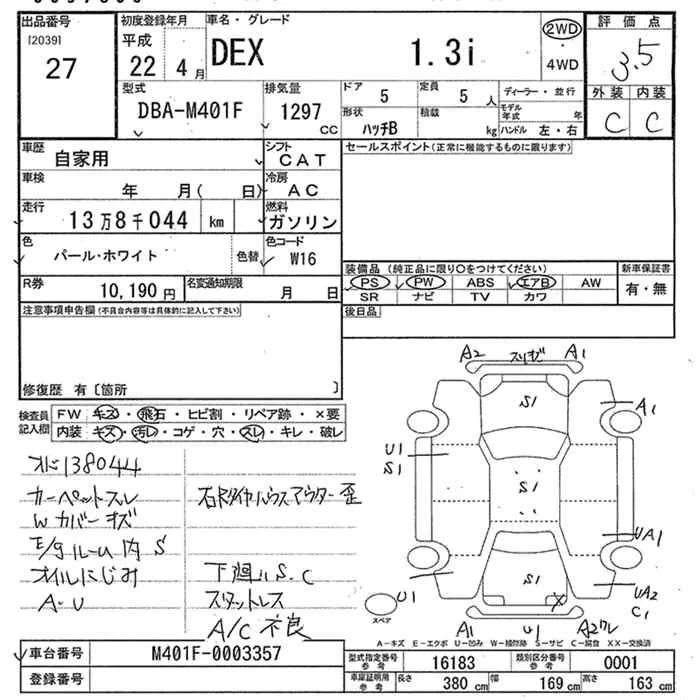 出品番号
[2039]
27
初度登録年月
平成
22 4 月
車名・グレード
DEX 1.3i
2WD
・
4WD
評価点
3.5
外装 内装
C C
型式
DBA-M401F
排気量
1297
CC
ドア
5
定員
5 人
ディーラー・並行
形状
ハッチB
積載
kg
モデル年式 年
ハンドル 左・右
車歴
自家用
シフト
CAT
セールスポイント(正常に機能するものに限ります)
車検
年 月( 日)
冷房
AC
走行
13万8千044 km
燃料
ガソリン
色
パール・ホワイト
色替
色コード
W16
装備品 (純正品に限り○をつけてください)
新車保証書
PS PW ABS エアB AW
SR ナビ TV カワ
有・無
R券
10,190 円
名変通知期限
月 日
後日品
注意事項申告欄(不具合内容等は具体的に記入して下さい)
修復歴 有〔箇所 〕
検査員
記入欄
FW キズ・飛石・ヒビ割・リペア跡・×要
内装 キズ・汚レ・コゲ・穴・スレ・キレ・破レ
メーター138044
カーペットスレ
Wカバーキズ
E/gルーム内S
オイルにじみ
A・U
右Rタイヤハウスアウター歪
下廻りS.C
スタットレス
A/C不良
A2 スリキズ A1
S1
A1
U1
S1
S1
UA1
U1
S1
X
UA2
C1
スペア
A1 U1 A2ワレ
A-キズ E-エクボ U-凹み W-補修跡 S-サビ C-腐食 XX-交換済
車台番号
M401F-0003357
登録番号
型式指定番号
参考
16183
類別区分番号
参考
0001
車庫証明用
参考
長さ
380 cm
幅
169 cm
高さ
163 cm